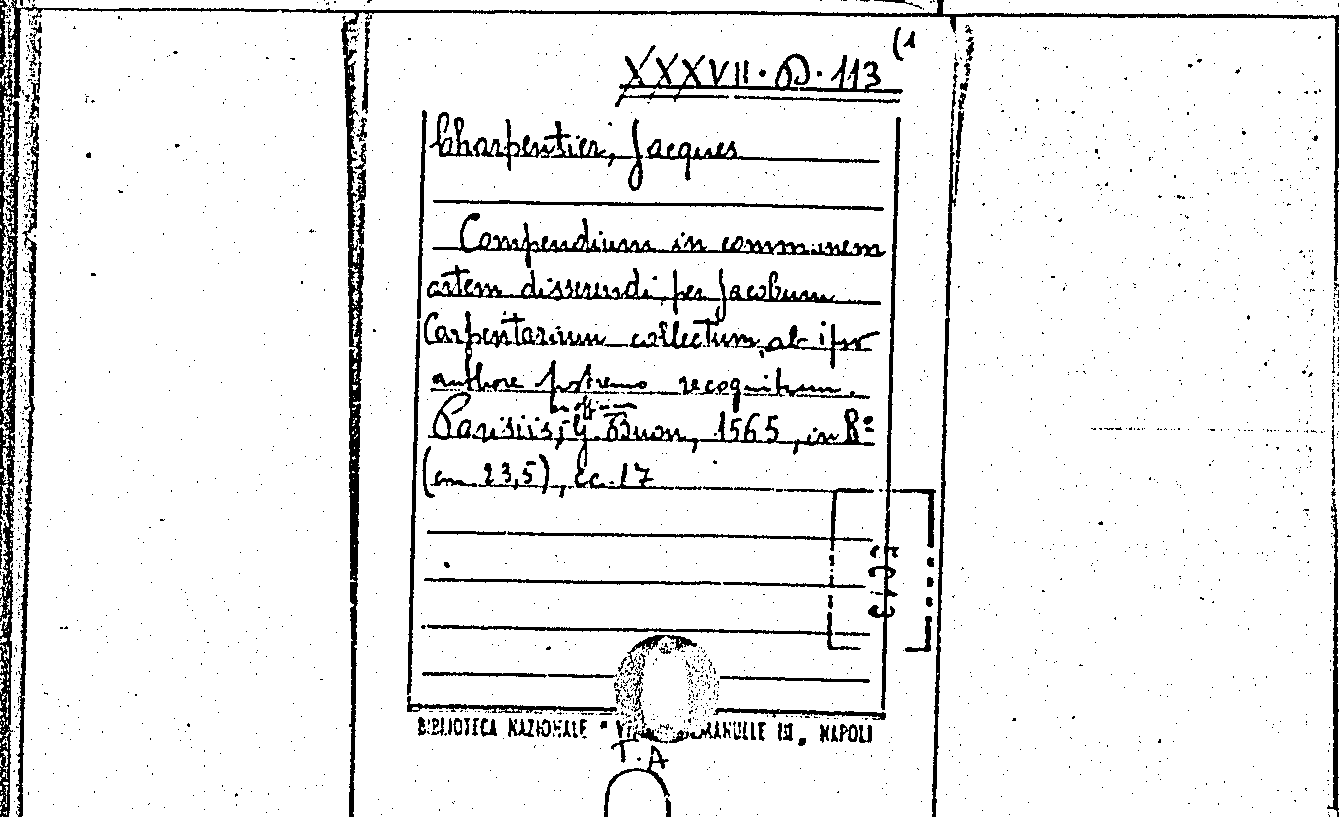 (1
XXXVII. D. 113
Charpentier, Jacques
Compendium in communem
artem disserendi, per Jacobum
Carpentarium collectum, ab ipso
authore postremo recognitum.
in officina
Parisiis, G. Buon, 1565, in 8º
(cm 23,5), cc. 17
BIBLIOTECA NAZIONALE " EMANUELE III, NAPOLI
T. A